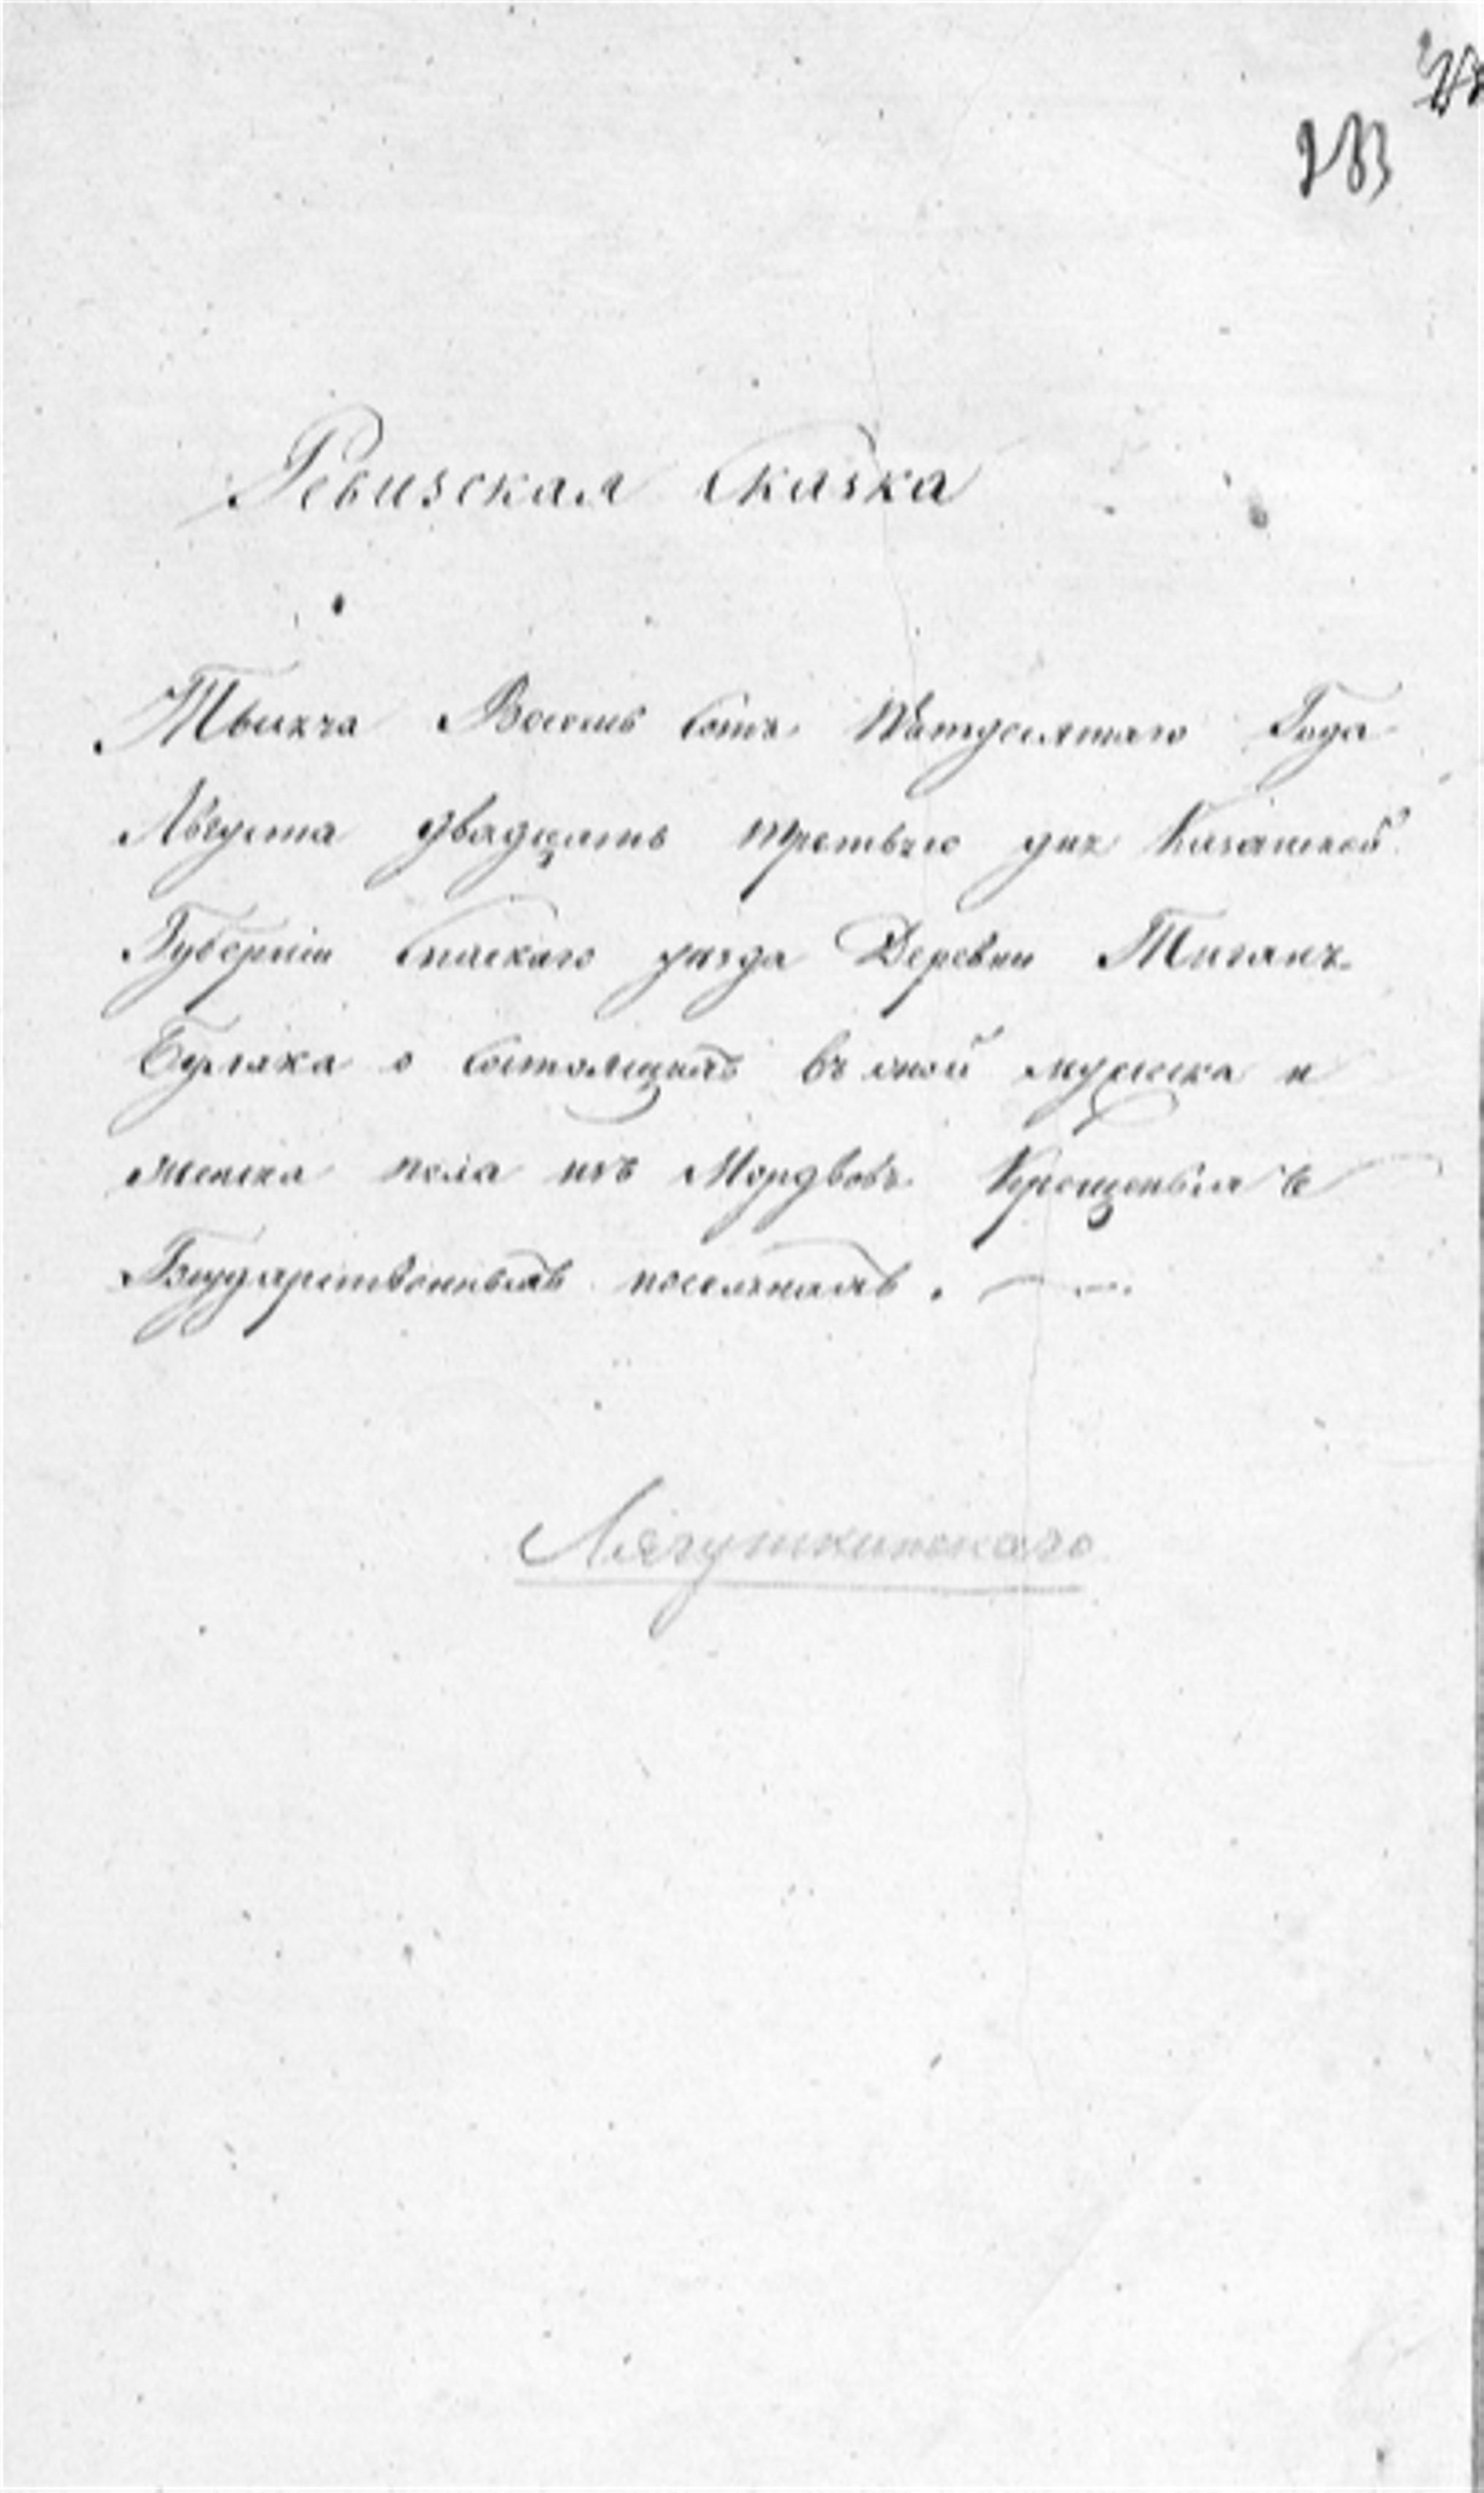 283
Ревизская Сказка
Тысяча Восемь Сотъ Пятдесятаго Года
Августа двадцать третьяго дня Казанской
Губерніи Спаскаго уезда Деревни Тиганъ
Буляка о Состоящихъ въ оной мужеска и
женска пола изъ Мордвовъ Крещеныхъ
Государственныхъ поселянахъ.
Лягушкинскаго